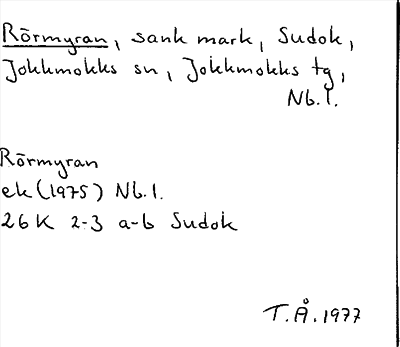 Rörmyran, sank mark, Sudok,
Jokkmokks sn, Jokkmokks tg,
Nb.l.
Rörmyran
ek (1975) Nb.l.
26 K 2-3 a-b Sudok
T.Å. 1977